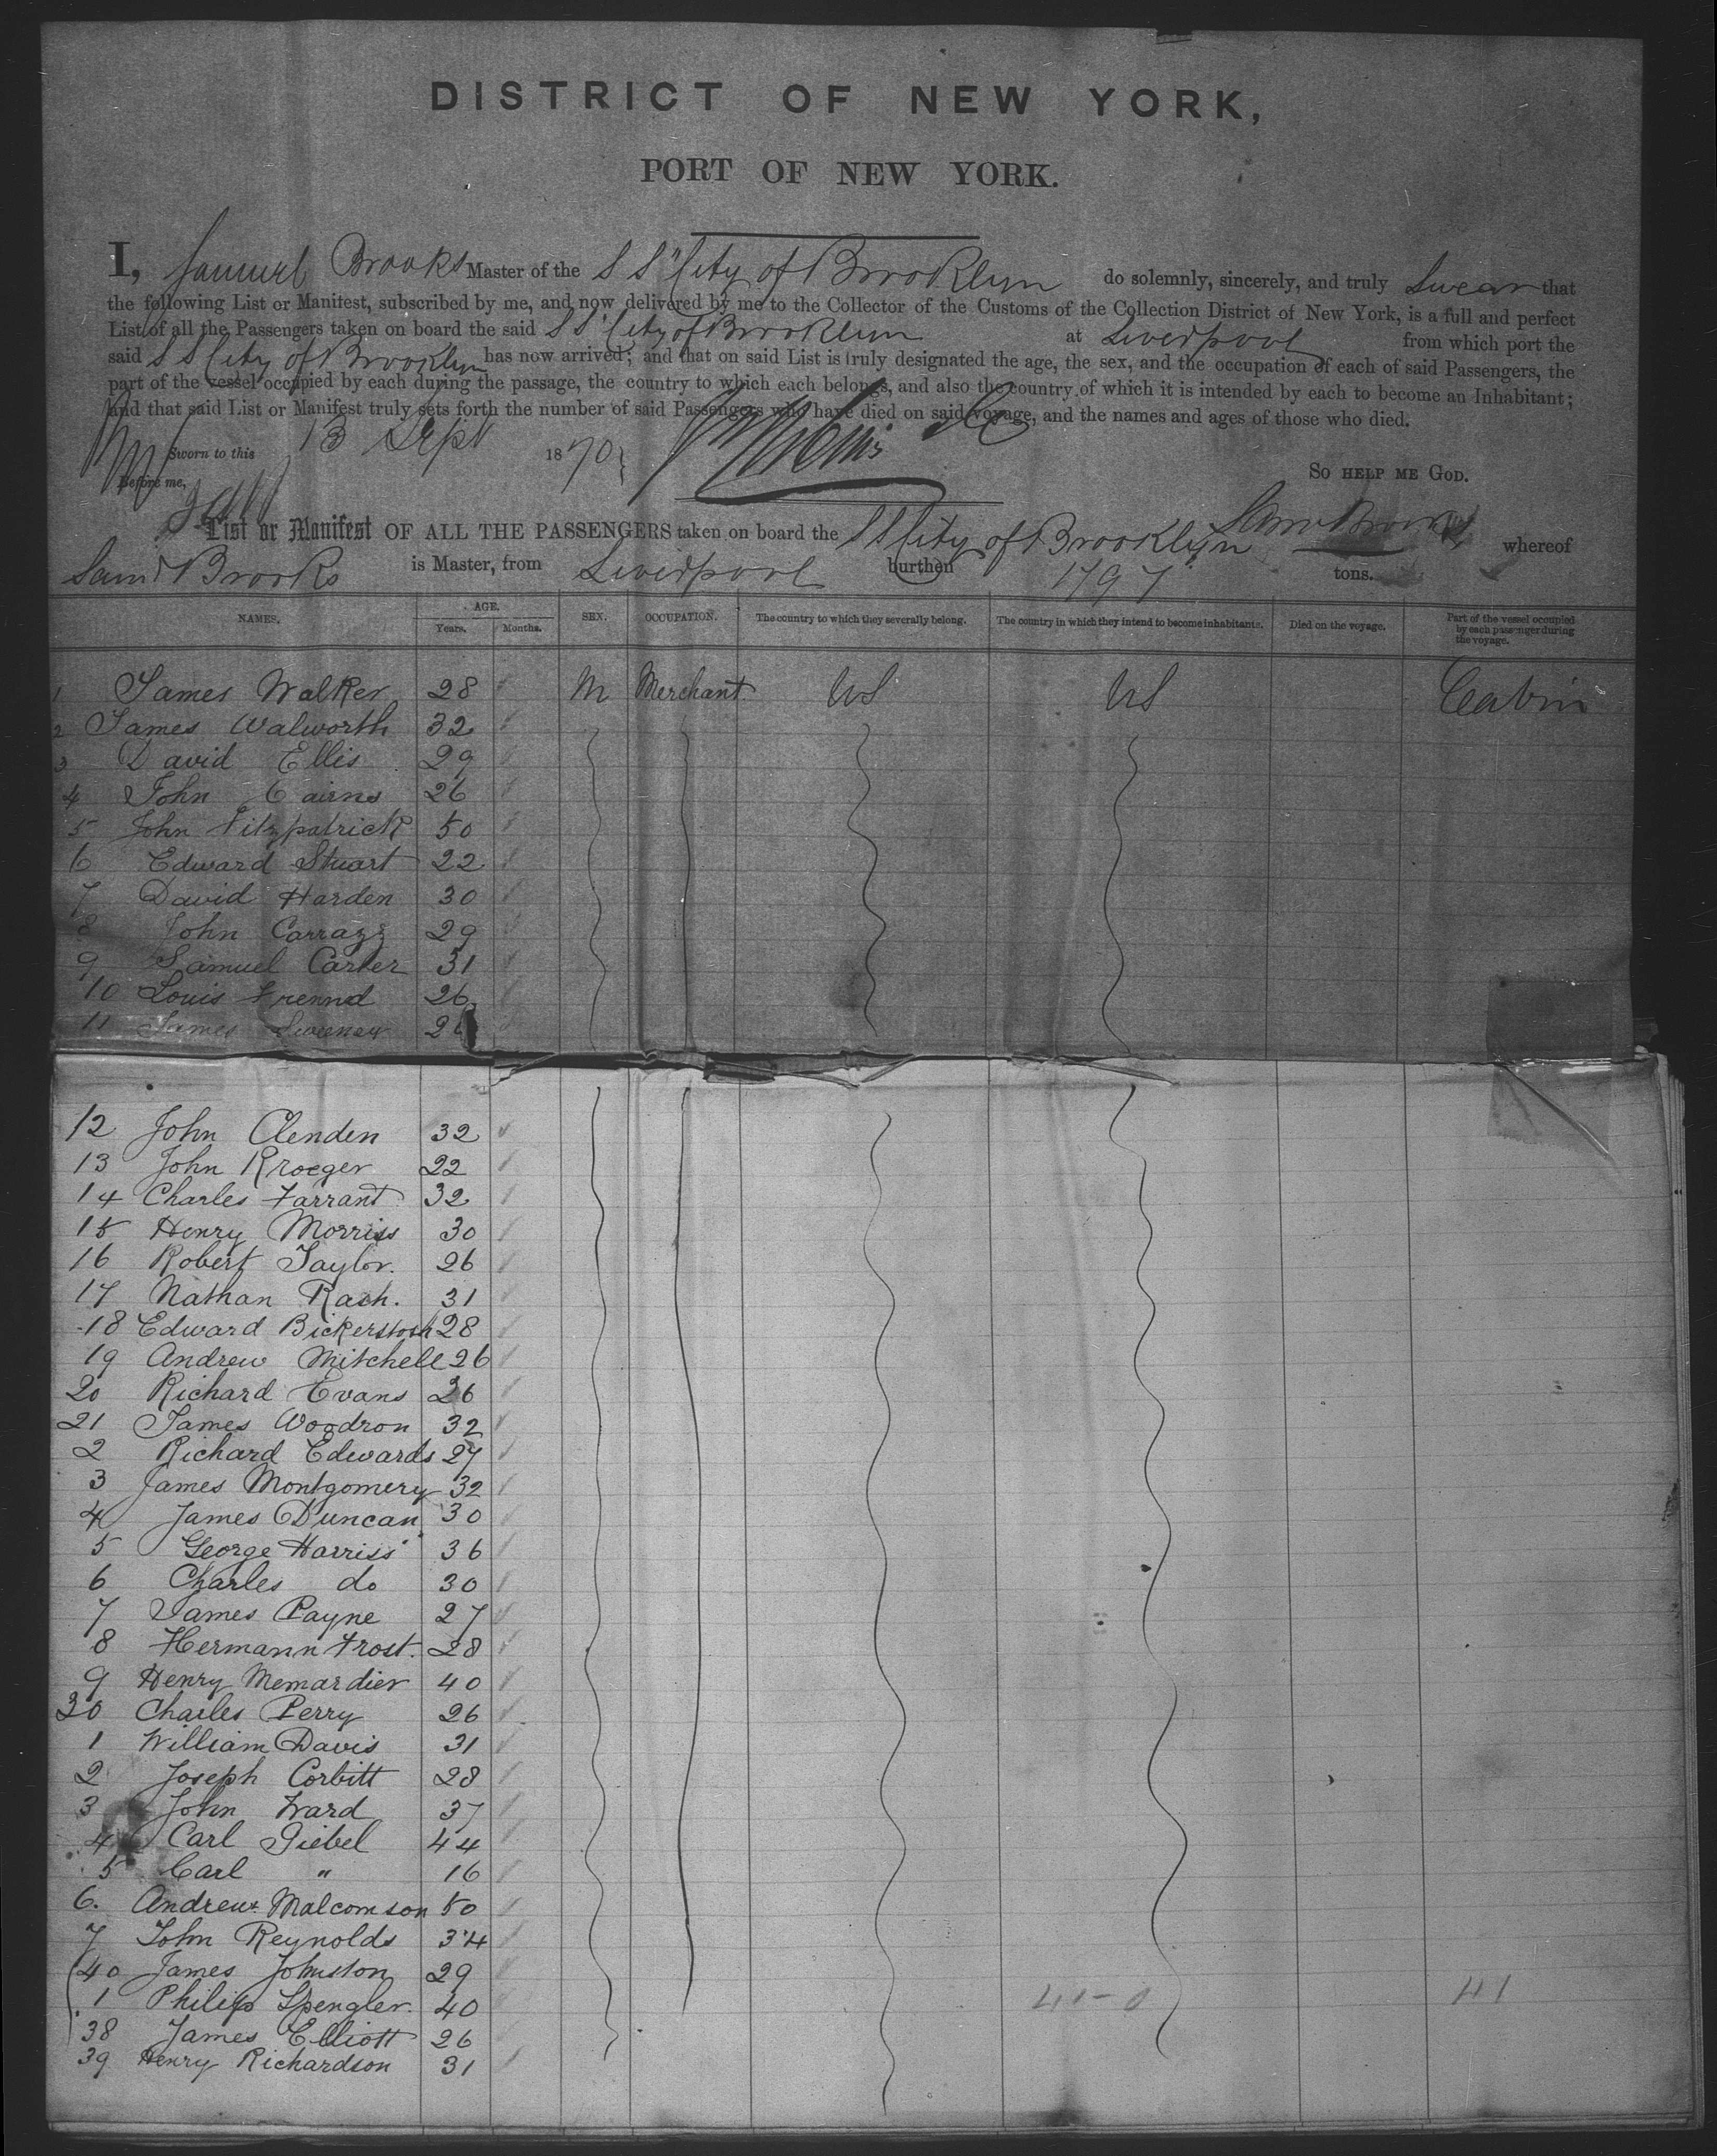 DISTRICT OF NEW YORK,
PORT OF NEW YORK.
I, Samuel Brooks Master of the S S "City of Brooklyn do solemnly, sincerely, and truly Swear that
the following List or Manifest, subscribed by me, and now delivered by me to the Collector of the Customs of the Collection District of New York, is a full and perfect
List of all the Passengers taken on board the said S S "City of Brooklyn at Liverpool from which port the
said S S City of Brooklyn has now arrived; and that on said List is truly designated the age, the sex, and the occupation of each of said Passengers, the
part of the vessel occupied by each during the passage, the country to which each belongs, and also the country of which it is intended by each to become an Inhabitant;
and that said List or Manifest truly sets forth the number of said Passengers who have died on said voyage, and the names and ages of those who died.
Sworn to this 13 Sept 1870
Before me,
So HELP ME GOD.
Saml Brooks
List or Manifest OF ALL THE PASSENGERS taken on board the S S City of Brooklyn whereof
Saml Brooks is Master, from Liverpool burthen 1797 tons.
NAMES. AGE. Years. Months. SEX. OCCUPATION. The country to which they severally belong. The country in which they intend to become inhabitants. Died on the voyage. Part of the vessel occupied by each passenger during the voyage.
1 James Walker 28 M Merchant US US Cabin
2 James Walworth 32
3 David Ellis 29
4 John Cairns 26
5 John Fitzpatrick 50
6 Edward Stuart 22
7 David Harden 30
8 John 29
9 Samuel Carter 31
10 Louis Frennd 26
11 James Sweeney
12 John Clenden 32
13 John Kroeger 22
14 Charles Farrant 32
15 Henry Morriss 30
16 Robert Taylor. 26
17 Nathan Rach. 31
18 Edward 28
19 Andrew Mitchell 26
20 Richard Evans 26
21 James Woodron 32
2 Richard Edwards 27
3 James Montgomery 32
4 James Duncan 30
5 George Harriss 36
6 Charles do 30
7 James Payne 27
8 Hermann Frost. 28
9 Henry Memardier 40
30 Charles Perry 26
1 William Davis 31
2 Joseph Corbitt 28
3 John Ward 37
4 Carl Giebel 44
5 Carl " 16
6. Andrew Malcomson 50
7 John Reynolds 34
40 James Johnston 29
1 Philip Spengler. 40 41-0 41
38 James Elliott 26
39 Henry Richardson 31